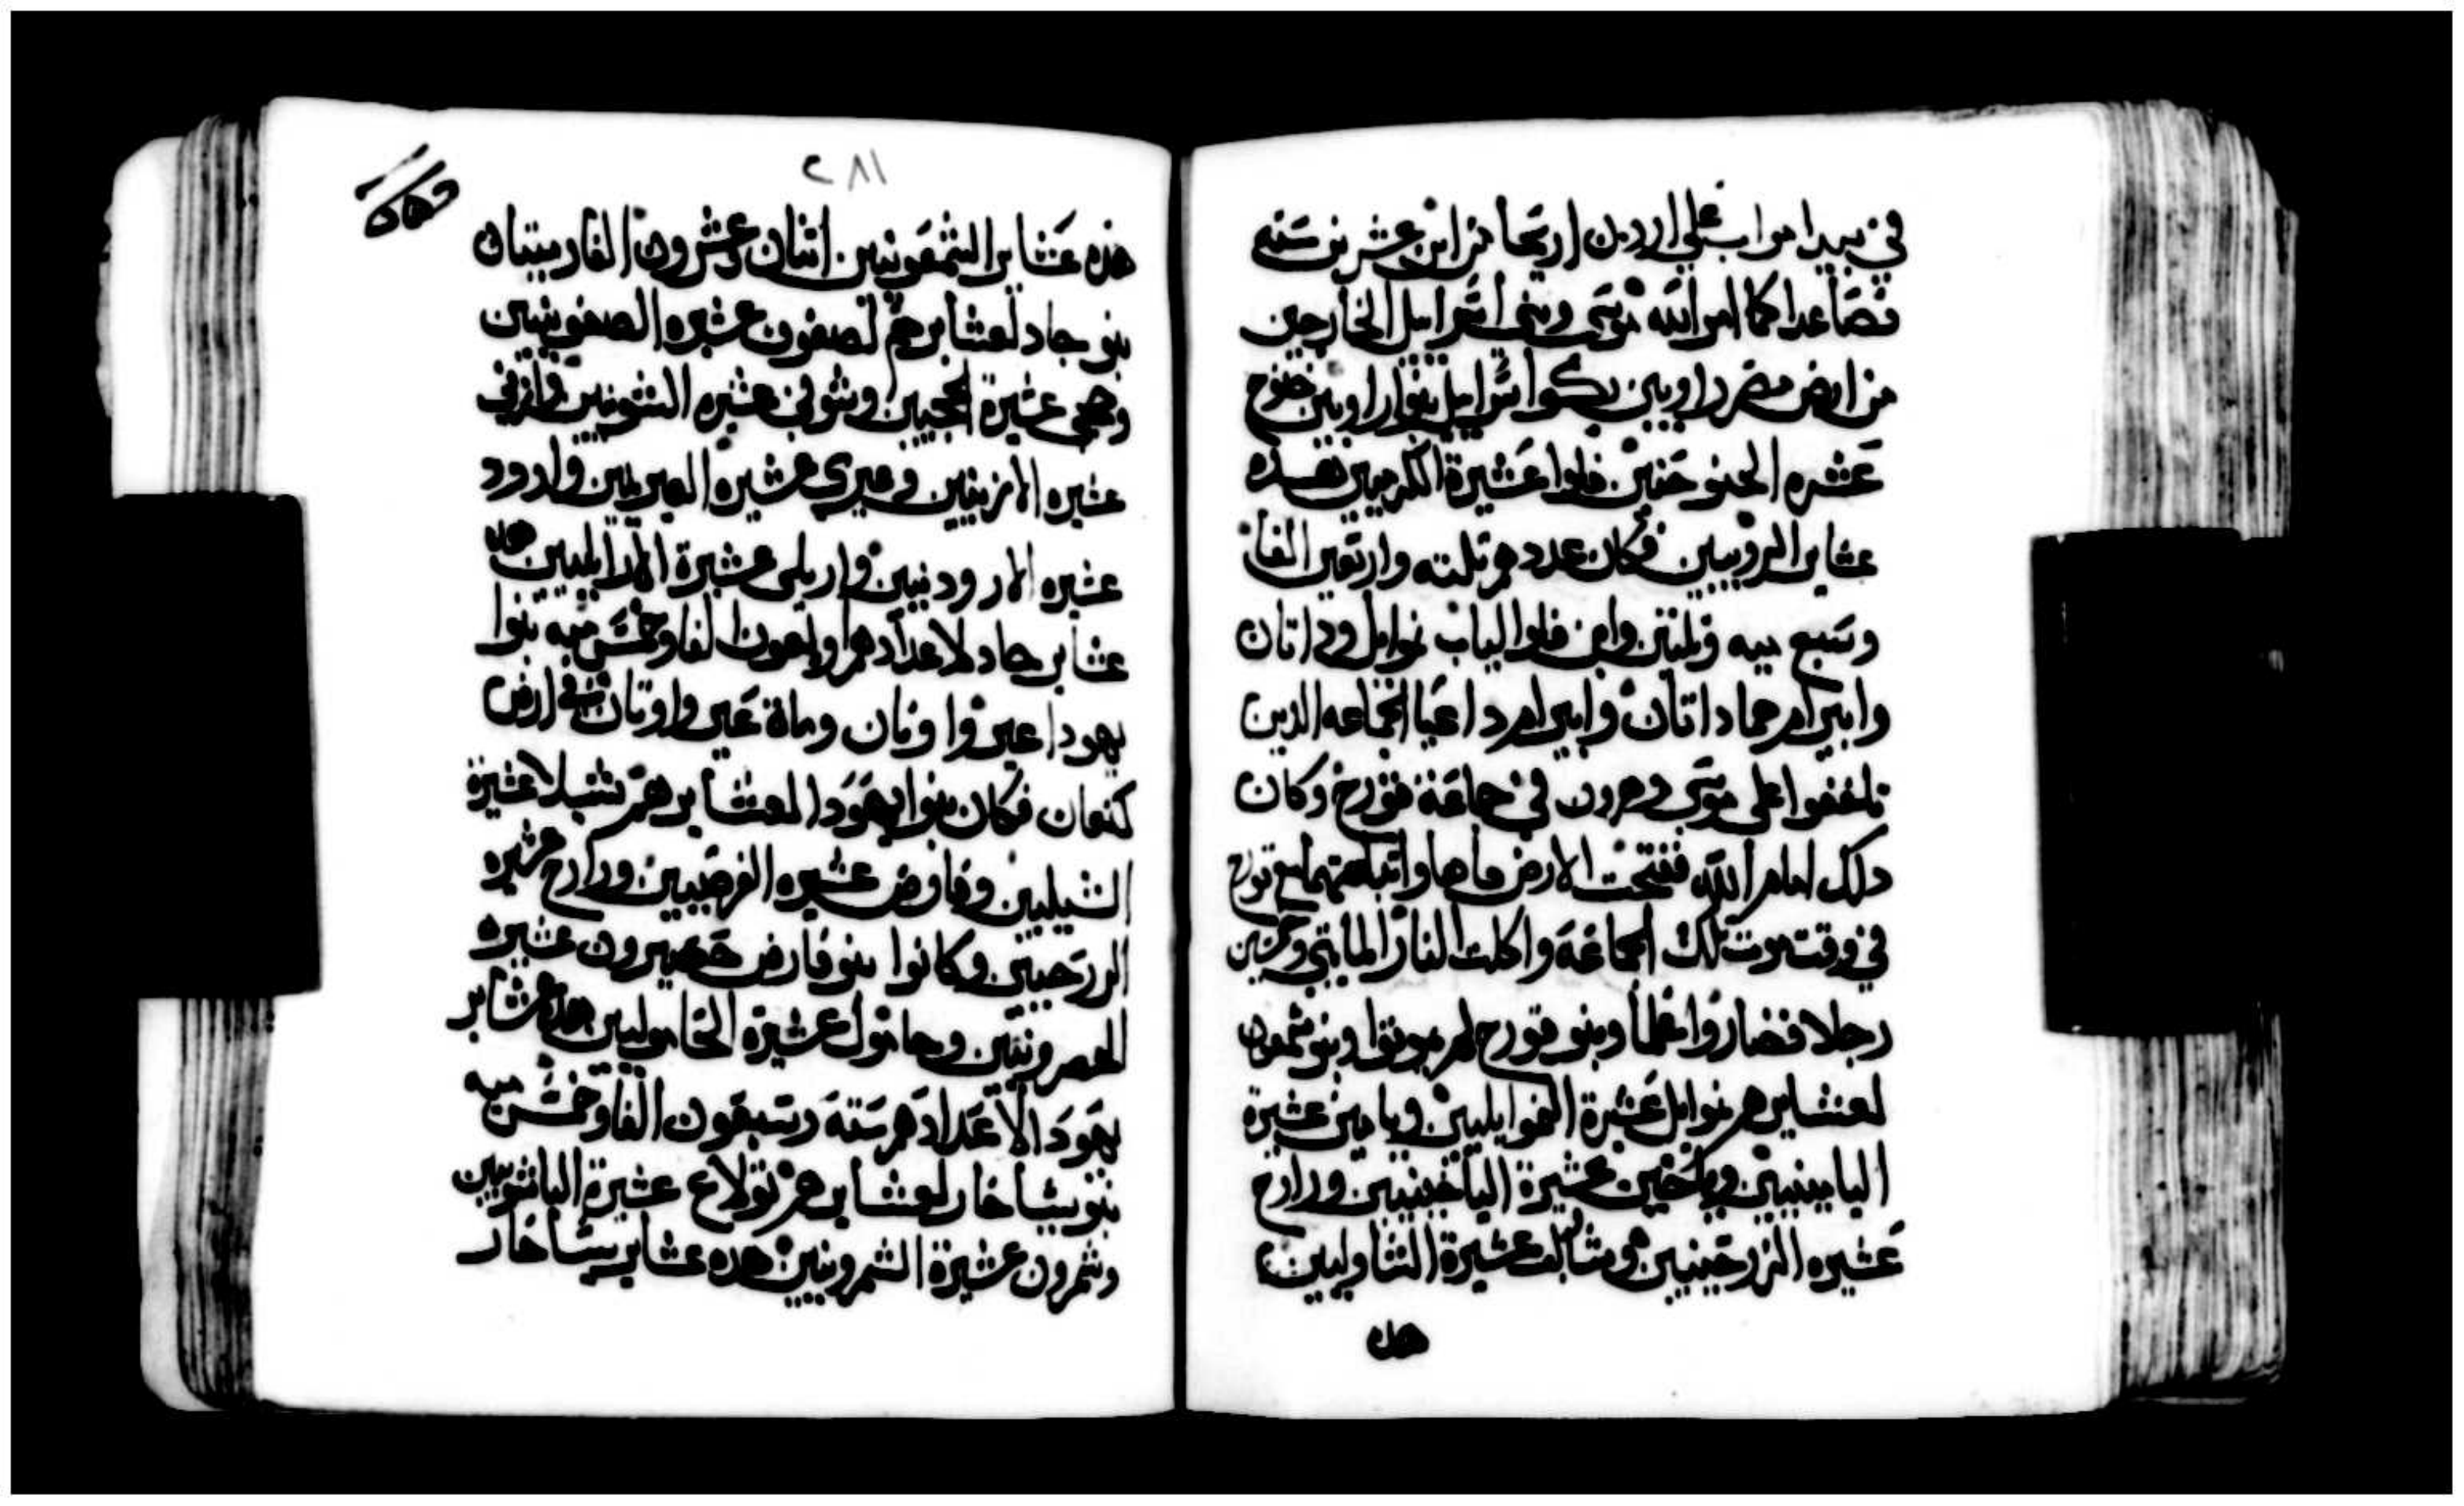 في بيدا مواب علي اردن اريحا من ابن عشرين سنه
فصاعدا كما امر الله موسى وبني اسرايل الخارجين
من ارض مصر راوبين بكر اسرايل بنوا راوبين خنوخ
عشره الحنوخنين فلوا عشيرة الكرميين هذه
عشاير الروبيين فكان عددهم تلته واربعين الفا
وسبع ميه وتلتين وابن فلوا الياب نموايل وداتان
وابيرام هما داتان وابيرام داعيا الجماعه الدين
تلففوا على موسى وهرون في جماعة قورح وكان
دلك امام الله ففتحت الارض فاها وابتلعتهما مع قورح
في وقت موت تلك الجماعة واكلت النار المايتي وخمسين
رجلا فصاروا مثلا وبنو قورح لم يموتوا وبنو شمعون
لعشايرهم نموايل عشيرة النموايليين ويامين عشيرة
اليامينيين وياخين عشيرة الياخينيين وزارح
عشيره الزرحينيين وشاىل عشيرة الشاوليين
هده
٢٨١
هذه عشاير الشمعونيين اثنان وعشرون الفا وميتان
بنو جاد لعشايرهم لصفون عشيره الصفونيين
وحجى عشيرة الحجيين وشوني عشيره الشونيين وازني
عشيره الازنيين وعيري عشيره العيريين وارود
عشيره الارودنيين واريلى عشيرة الاراىليين هده
عشاير جاد لاعدادهم اربعون الفا وخمس ميه بنوا
يهودا عير واونان وماة عير واونان في ارض
كنعان فكان بنوا يهودا لعشايرهم شيلا عشيرة
الشيليين وفارض عشيره الفرضيين وزارح عشيره
الزرحيين وكانوا بنو فارض حصرون عشيره
الحصرونيين وحامول عشيرة الحاموليين هده عشاير
يهودا لاعدادهم ستة وسبعون الفا وخمس ميه
بنو يشاخار لعشايرهم تولاع عشيرة الياشوبيين
وشمرون عشيرة الشمرونيين هده عشاير يشاخار